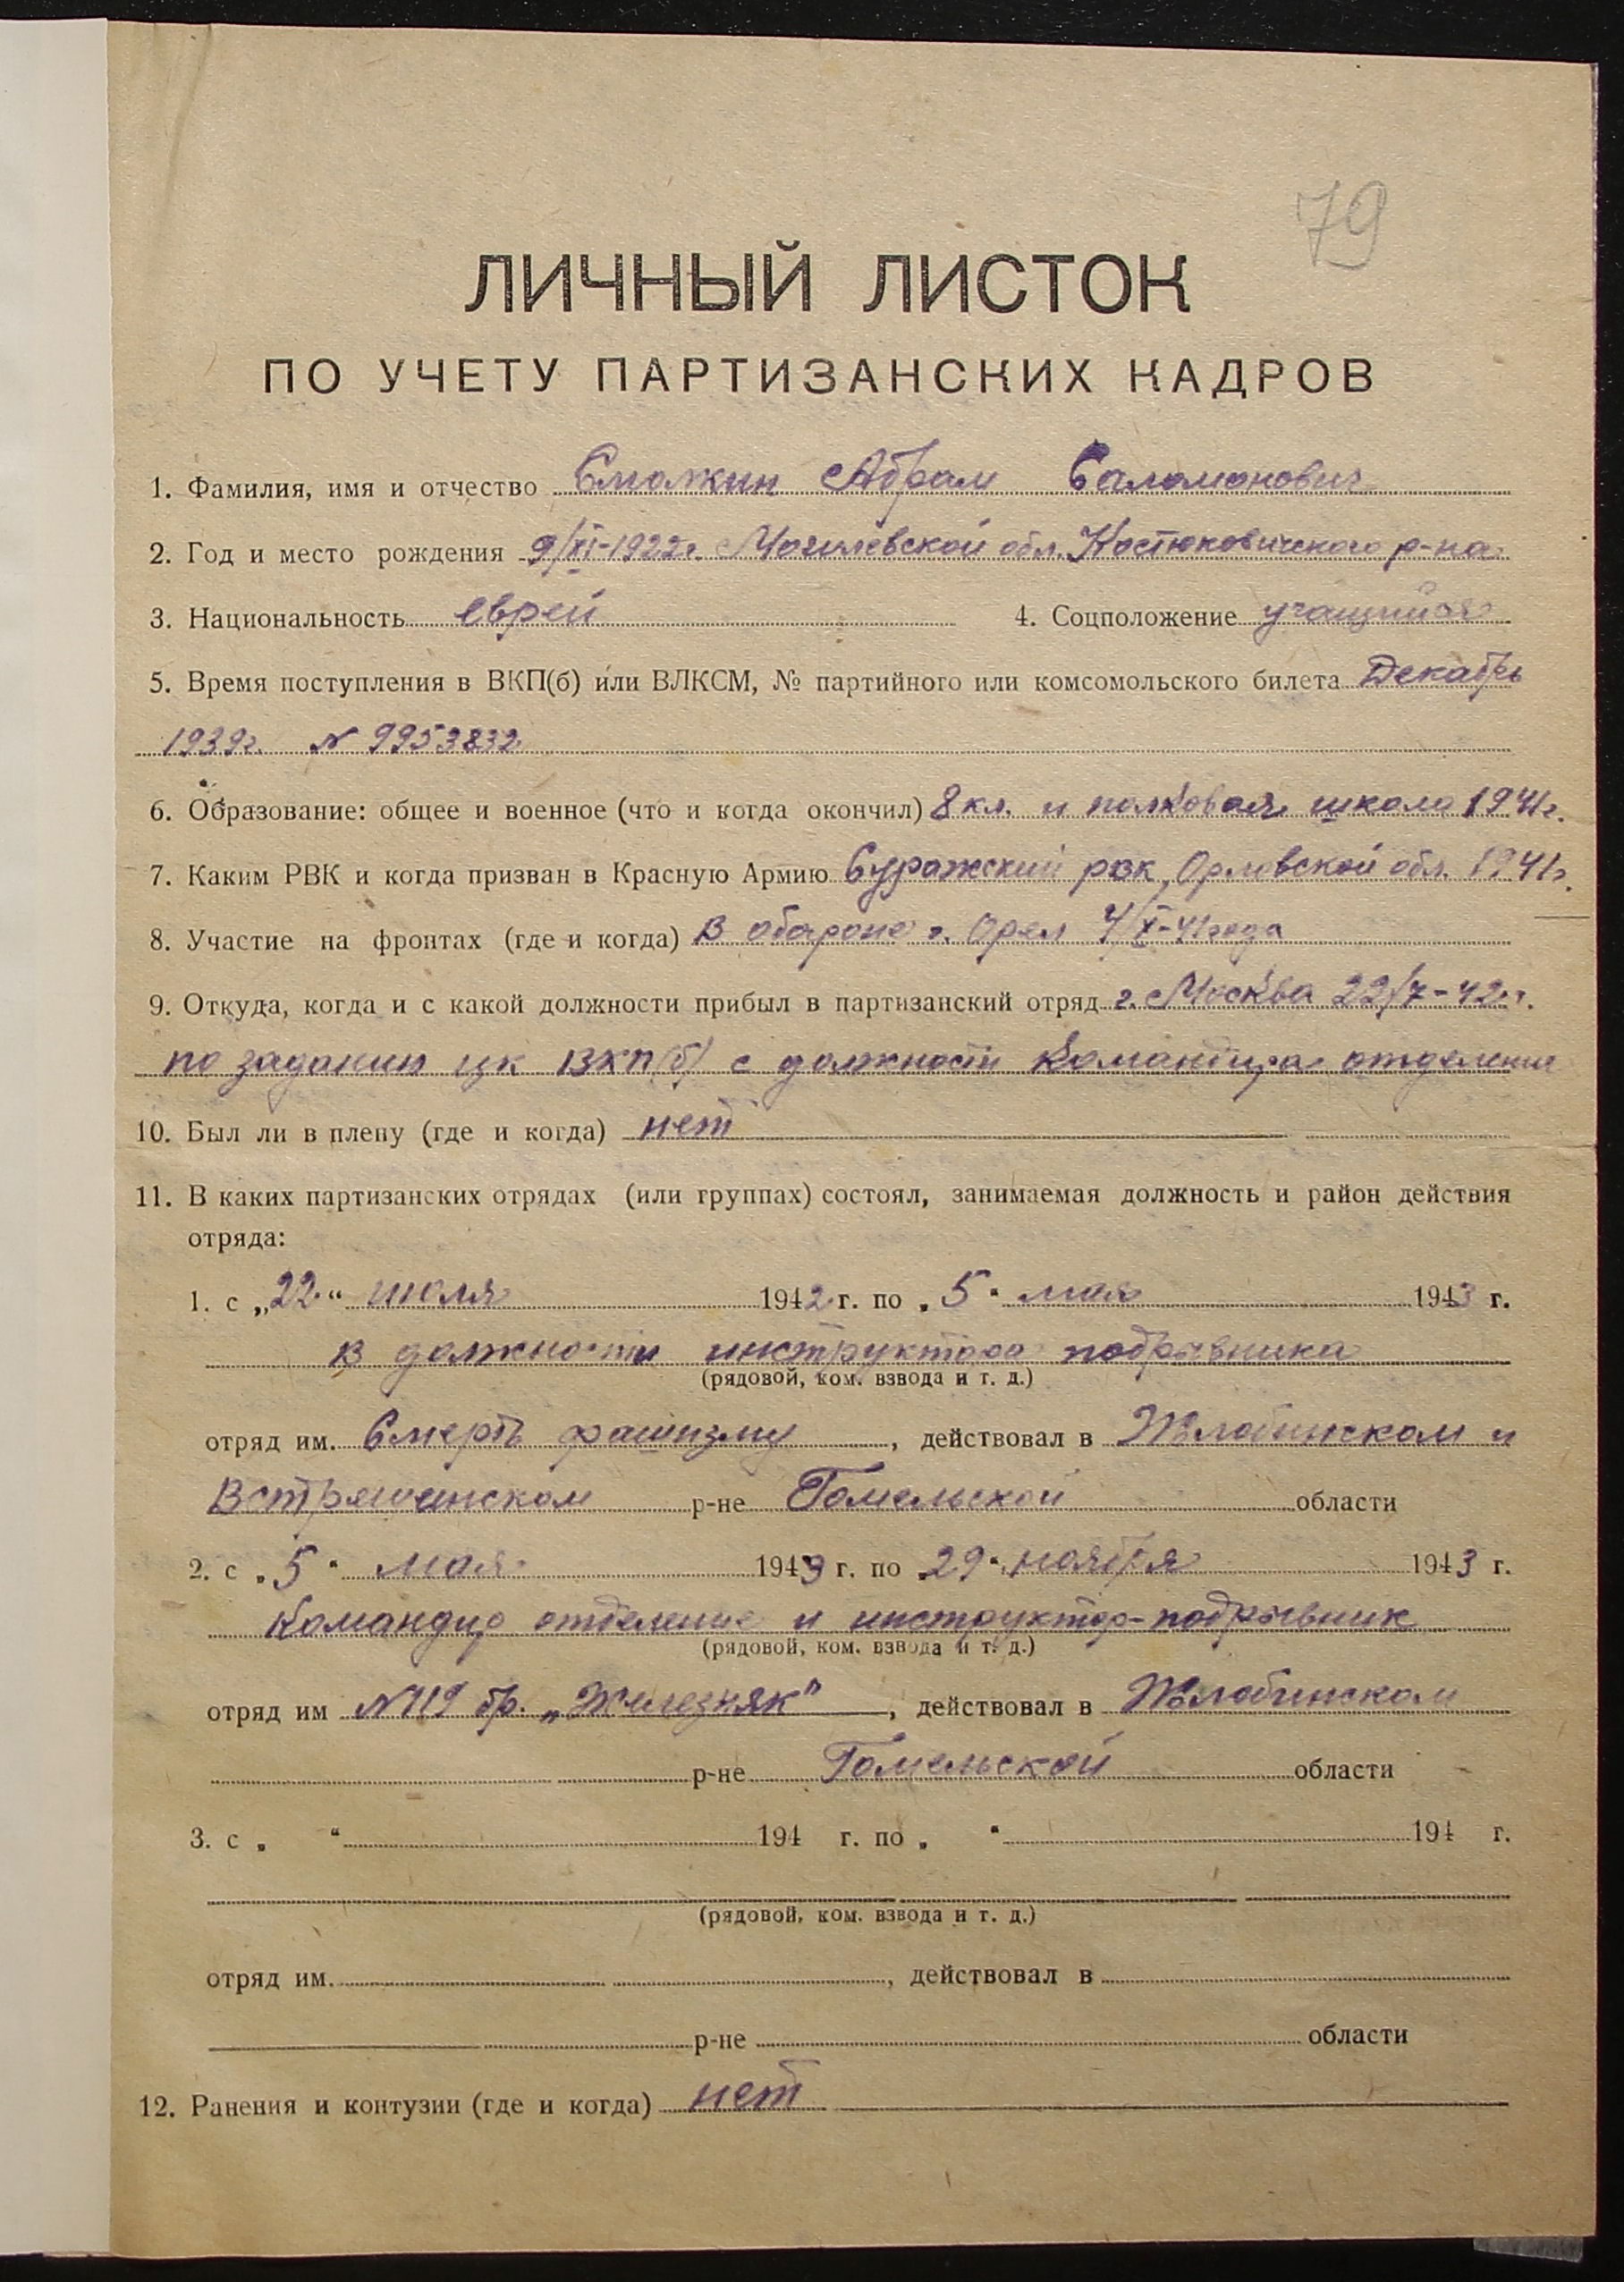 79
ЛИЧНЫЙ ЛИСТОК
ПО УЧЕТУ ПАРТИЗАНСКИХ КАДРОВ
1. Фамилия, имя и отчество Смолкин Абрам Саламонович
2. Год и место рождения 9/XI-1922г. Могилевской обл. Костюковичского р-на
3. Национальность еврей 4. Соцположение учащийся
5. Время поступления в ВКП(б) или ВЛКСМ, № партийного или комсомольского билета Декабрь
1939г. № 9953832
6. Образование: общее и военное (что и когда окончил) 8 кл. и полковая школа 1941г.
7. Каким РВК и когда призван в Красную Армию Суражский рвк, Орловской обл. 1941г.
8. Участие на фронтах (где и когда) В обороне г. Орел 4/X-41 года
9. Откуда, когда и с какой должности прибыл в партизанский отряд г. Москва 22/7-42г.
по задании цк ВКП(б) с должности командира отделения
10. Был ли в плену (где и когда) нет
11. В каких партизанских отрядах (или группах) состоял, занимаемая должность и район действия
отряда:
1. с „22“ июля 1942 г. по „5“ мая 1943 г.
в должности инструктора подрывника
(рядовой, ком. взвода и т. д.)
отряд им. Смерть фашизму, действовал в Жлобинском и
р-не Гомельской области
2. с „5“ мая 1943 г. по „29“ ноября 1943 г.
Командир отделение и инструктор-подрывник
(рядовой, ком. взвода и т. д.)
отряд им №119 бр. „Железняк“, действовал в Жлобинском
р-не Гомельской области
3. с „ “ 194 г. по „ “ 194 г.
(рядовой, ком. взвода и т. д.)
отряд им. , действовал в
р-не области
12. Ранения и контузии (где и когда) нет